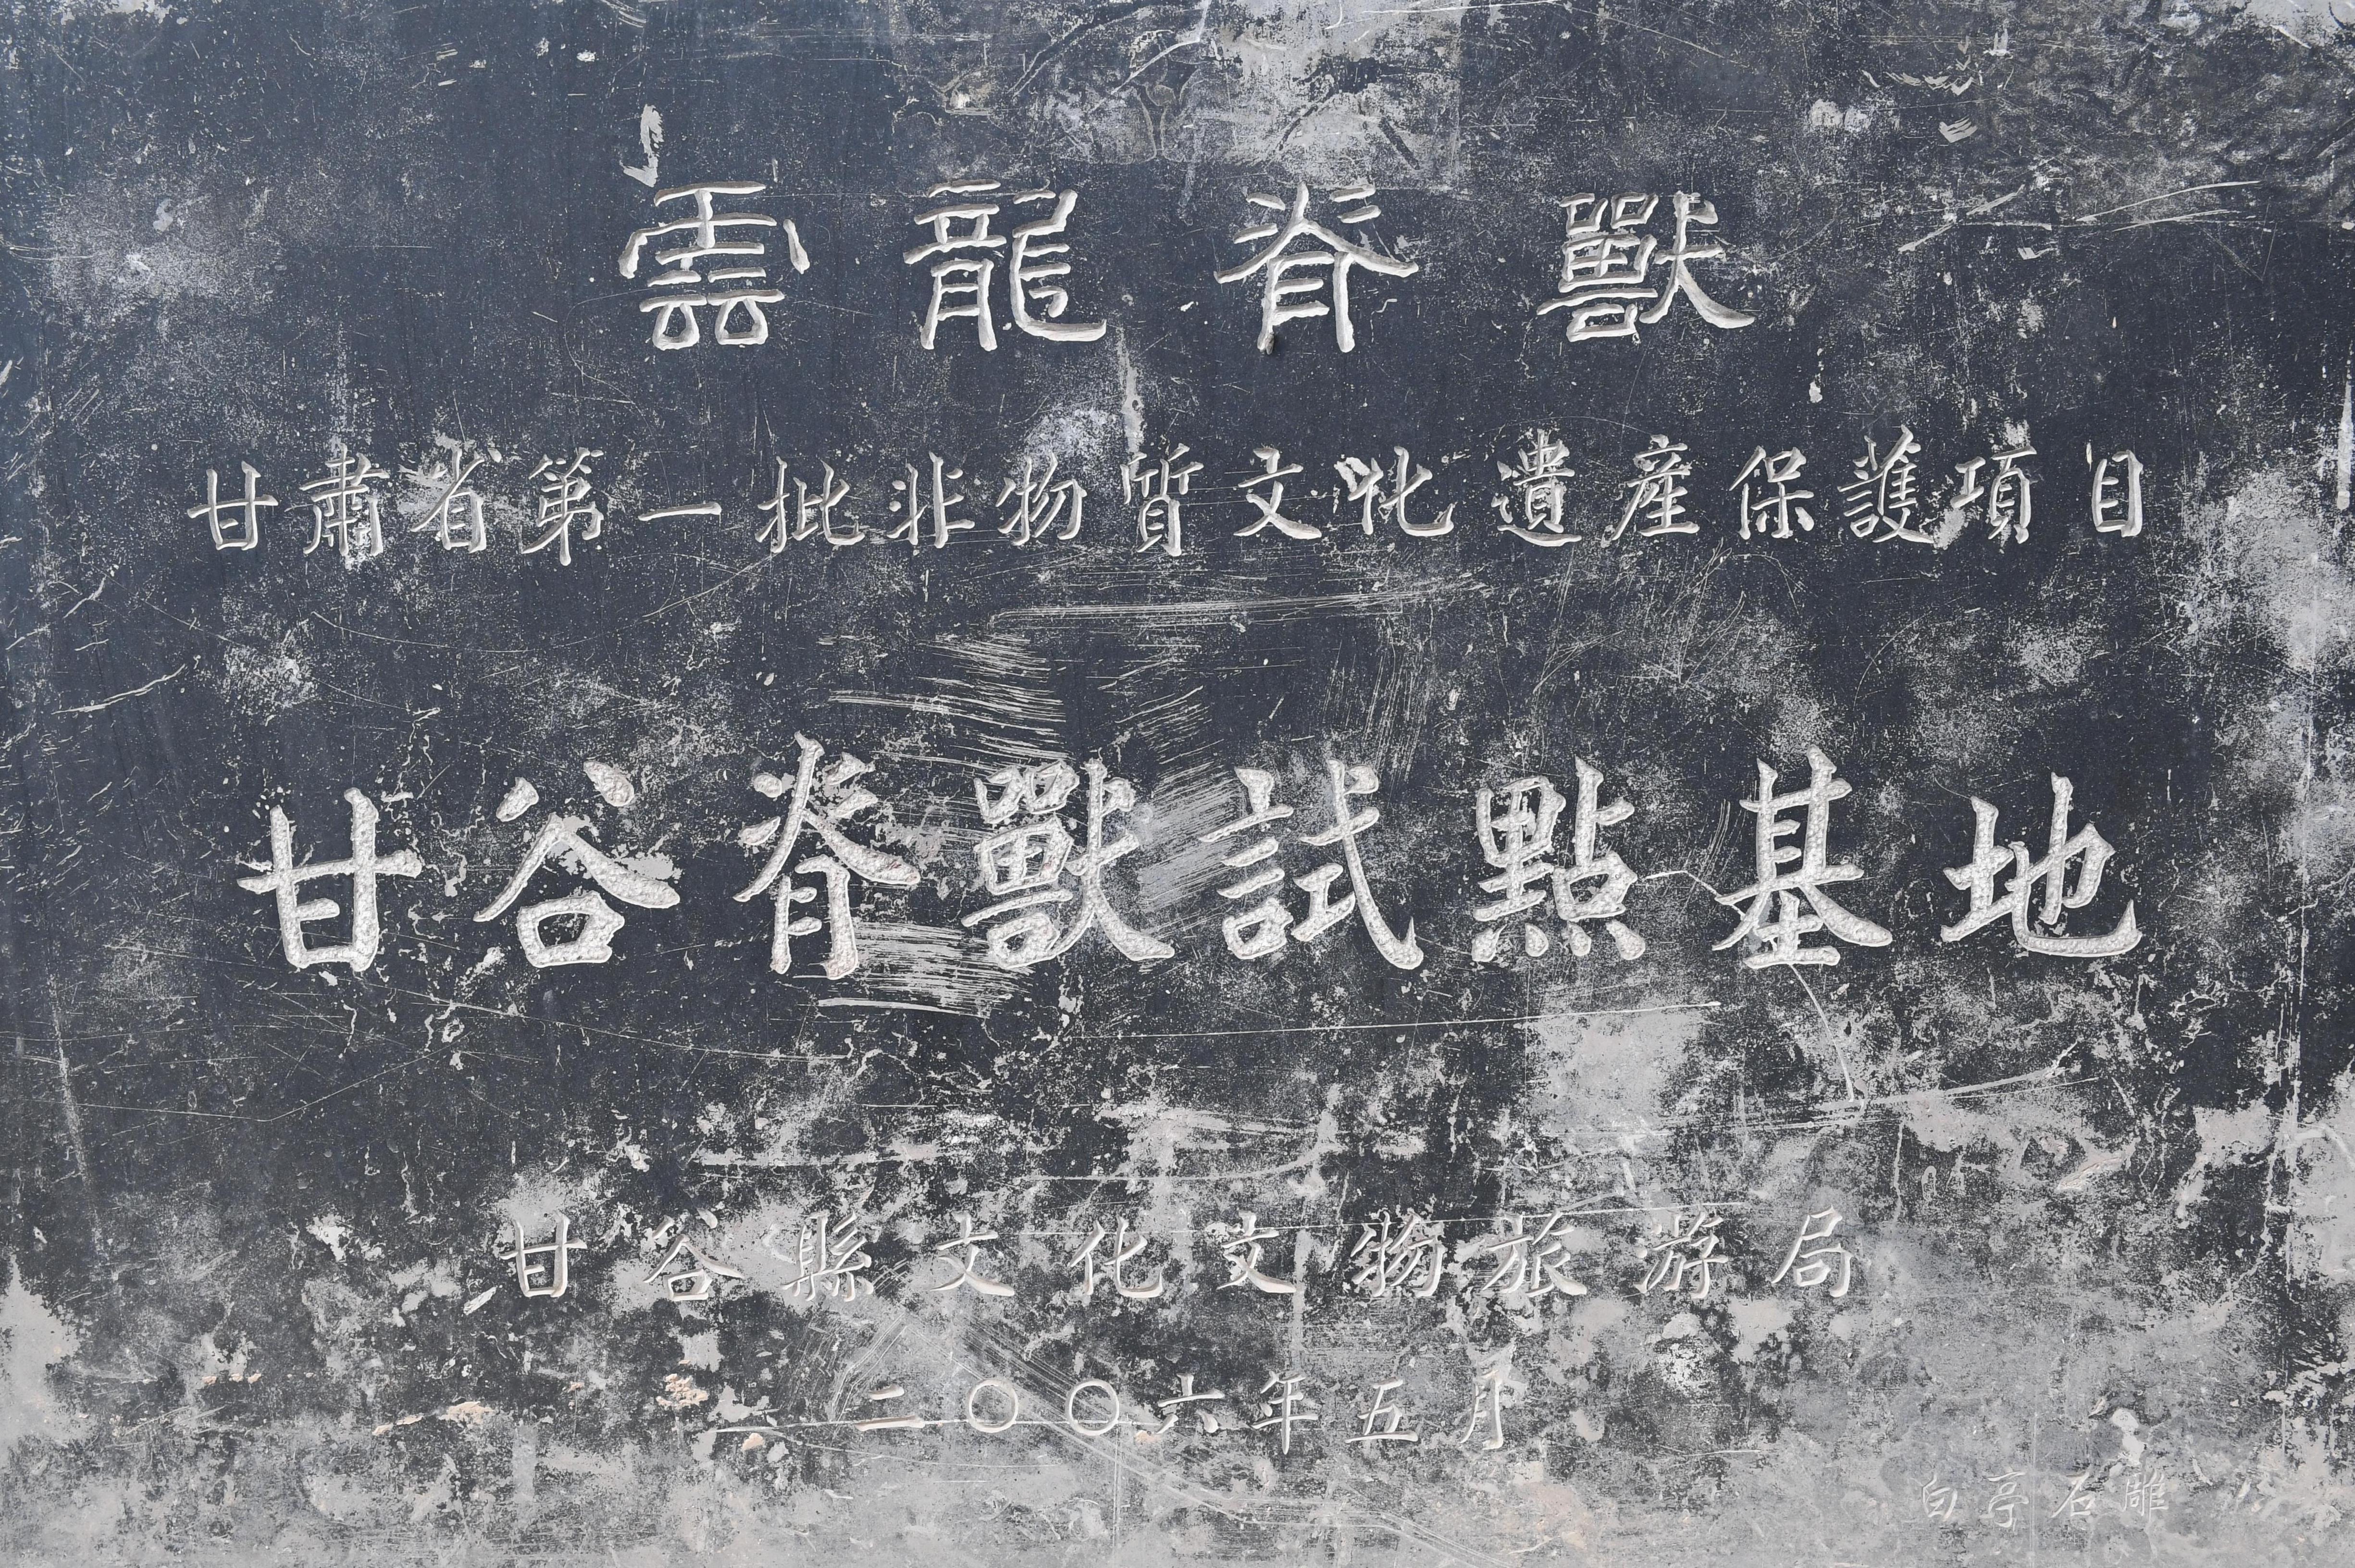 雲龍脊獸
甘肅省第一批非物質文化遺產保護項目
甘谷脊獸試點基地
甘谷縣文化文物旅游局
二〇〇六年五月
白亭石雕